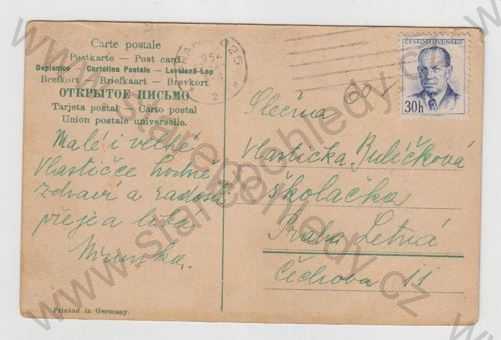 Carte postale
Postkarte — Post card
Dopisnice — Cartolina Postale — Levelező-Lap
Brefkort — Briefkaart — Brevkort
ОТКРЫТОЕ ПИСЬМО
Tarjeta postal — Carto postal
Union postale universelle.
Malé i velké
Vlastičce hodně
zdraví a radosti
přeje a líbá
Printed in Germany.
ČESKOSLOVENSKO
30h
Slečna
Vlastička Buličková
školačka
Praha Letná
Čechova 11
www.stare-pohledy.cz